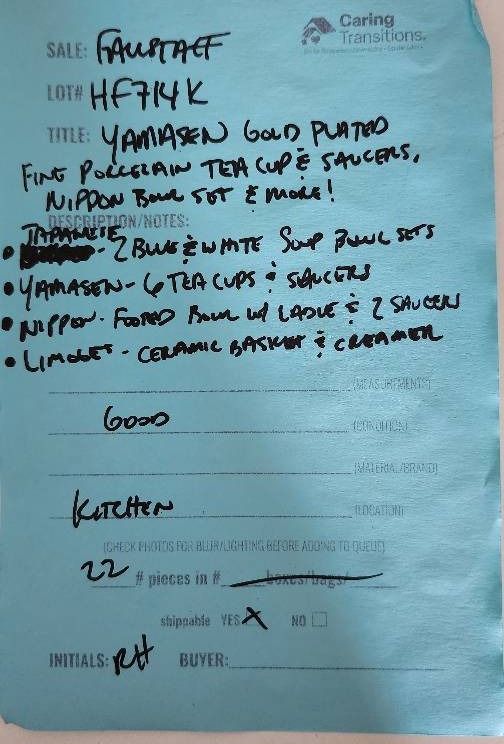 Caring
Transitions.
SALE: FALLSTAFF
LOT# HF714K
TITLE: YAMASEN GOLD PLATED
FINE PORCELAIN TEA CUP & SAUCERS,
NIPPON BOWL SET & MORE!
DESCRIPTION/NOTES:
JAPANESE
• - 2 BLUE & WHITE SOUP BOWL SETS
• YAMASEN - 6 TEA CUPS & SAUCERS
• NIPPON - FOOTED BOWL W/ LADLE & 2 SAUCERS
• LIMOGES - CERAMIC BASKET & CREAMER
(MEASUREMENTS)
GOOD (CONDITION)
(MATERIAL/BRAND)
KITCHEN (LOCATION)
(CHECK PHOTOS FOR BLUR/LIGHTING BEFORE ADDING TO QUEUE)
22 # pieces in # boxes/bags/
shippable YES X NO
INITIALS: RH BUYER: